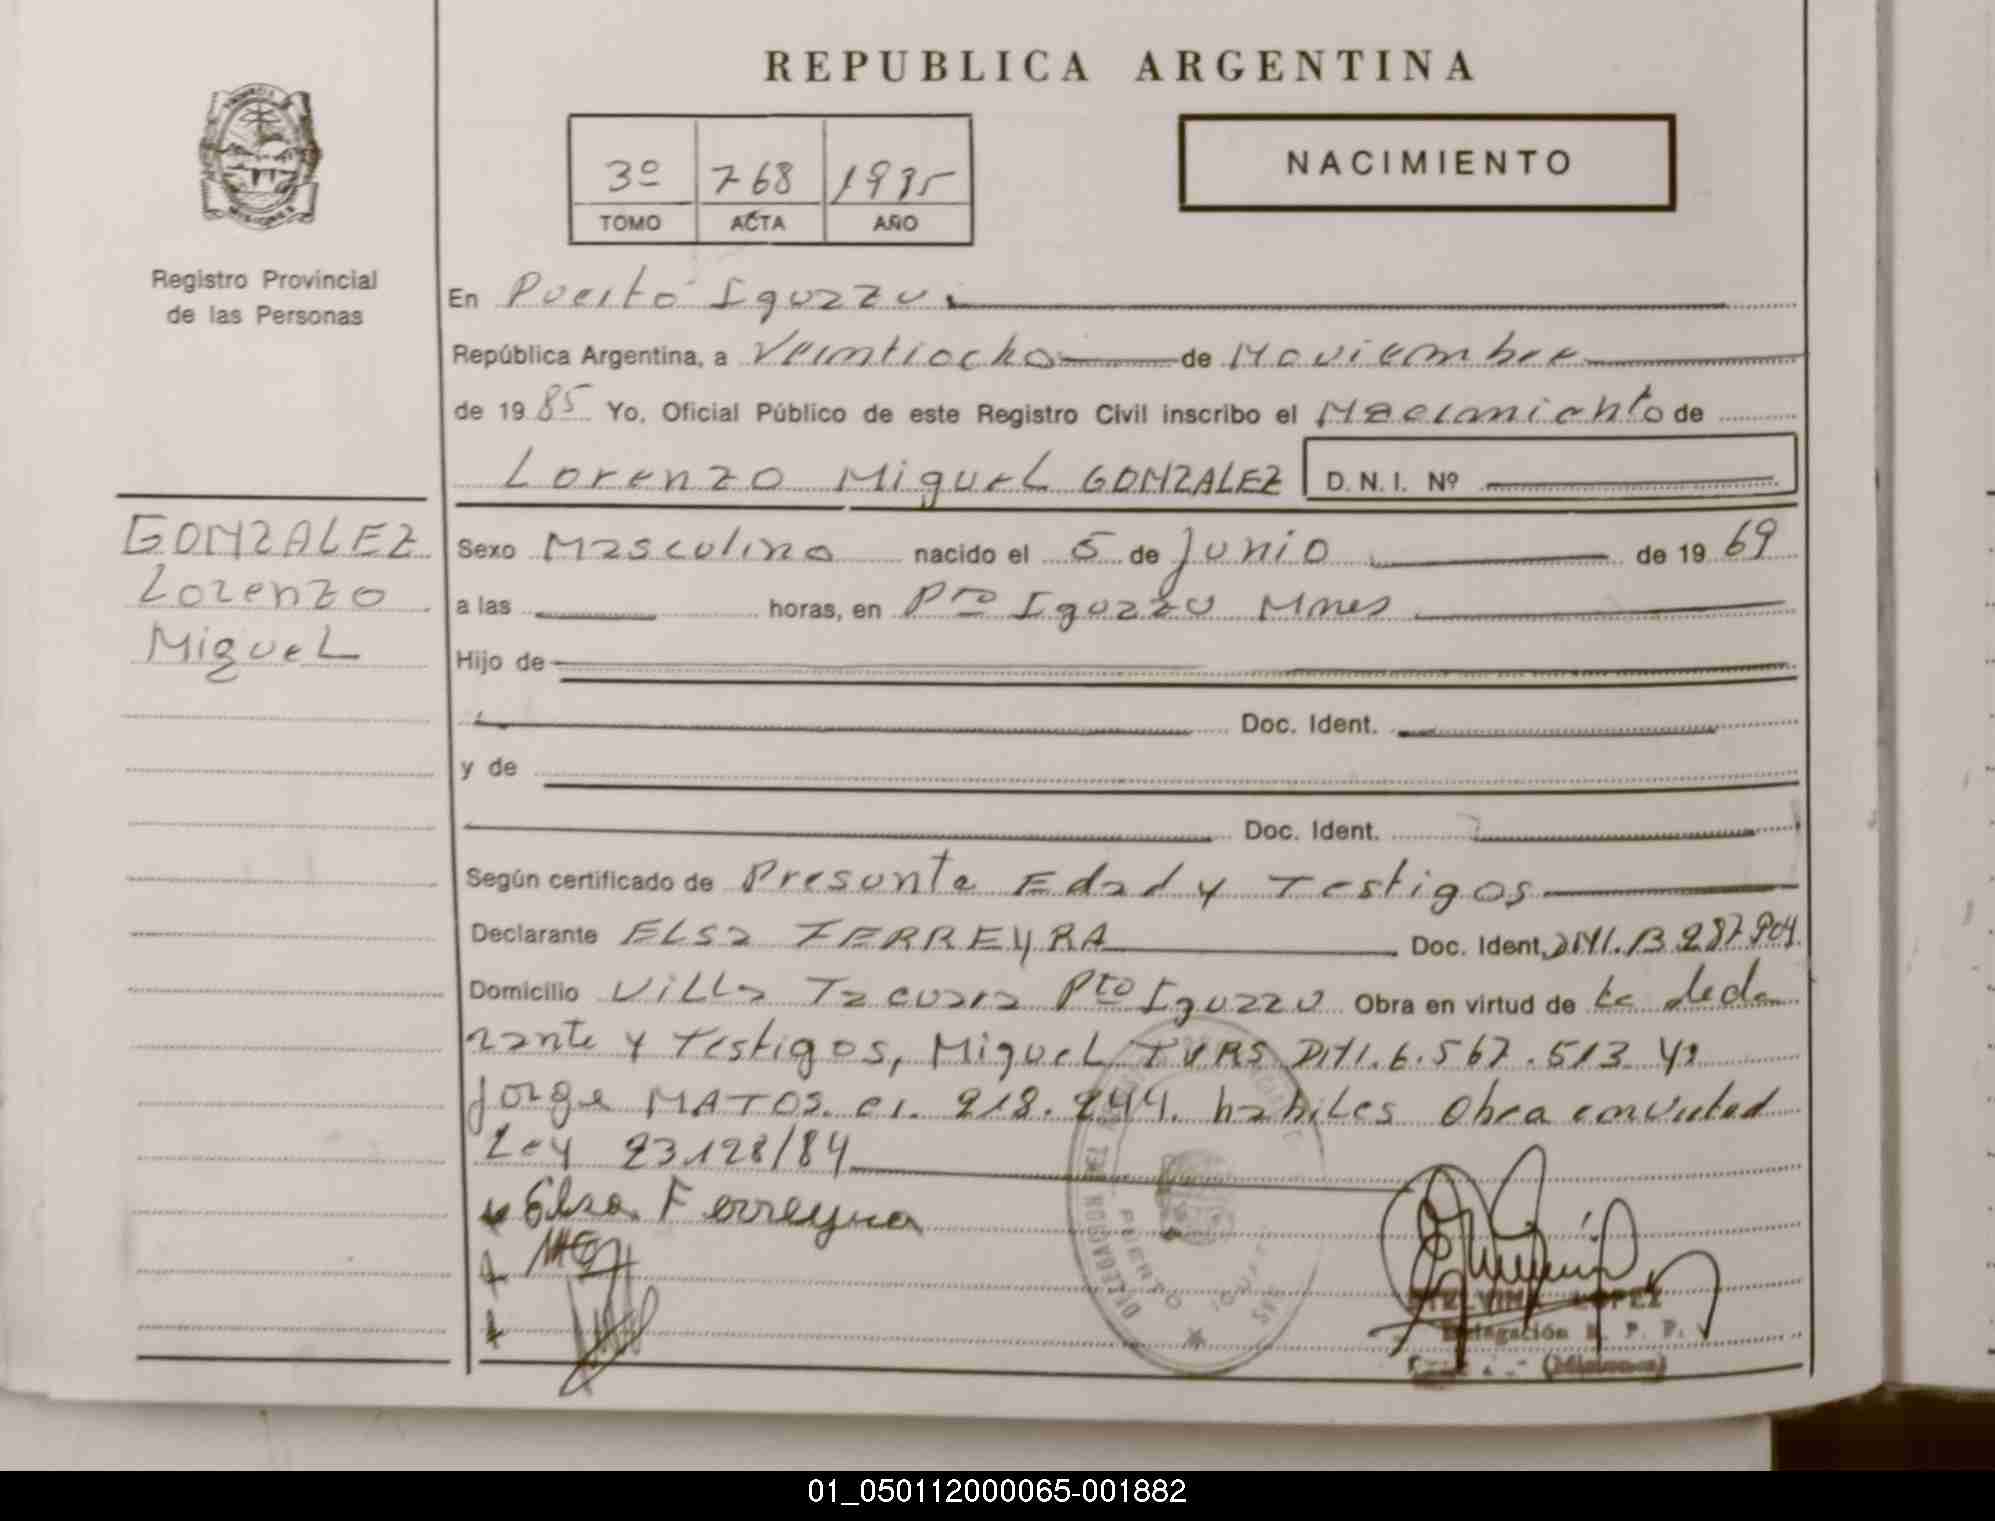 REPUBLICA ARGENTINA
3º 768 1985
TOMO ACTA AÑO
NACIMIENTO
MISIONES
Registro Provincial
de las Personas
GONZALEZ
Lorenzo
Miguel
En Puerto Iguazu
República Argentina, a Veintiocho de Noviembre
de 19 85 Yo, Oficial Público de este Registro Civil inscribo el Nacimiento de
Lorenzo Miguel GONZALEZ D. N. I. Nº
Sexo Masculino nacido el 5 de Junio de 19 69
a las horas, en Pto Iguazu Mnes
Hijo de
Doc. Ident.
y de
Doc. Ident.
Según certificado de Presunta Edad y Testigos
Declarante Elsa FERREYRA Doc. Ident. DNI.
Domicilio Villa Tacuara Pto Iguazu Obra en virtud de la decla
rante y Testigos, Miguel DNI. 6.567.513 y
Jorge MATOS. CI. 218.244. habiles Obra en virtud
Ley 23.128/84
Elsa Ferreyra
LOPEZ
Delegación R. P. P.
(Misiones)
01_050112000065-001882